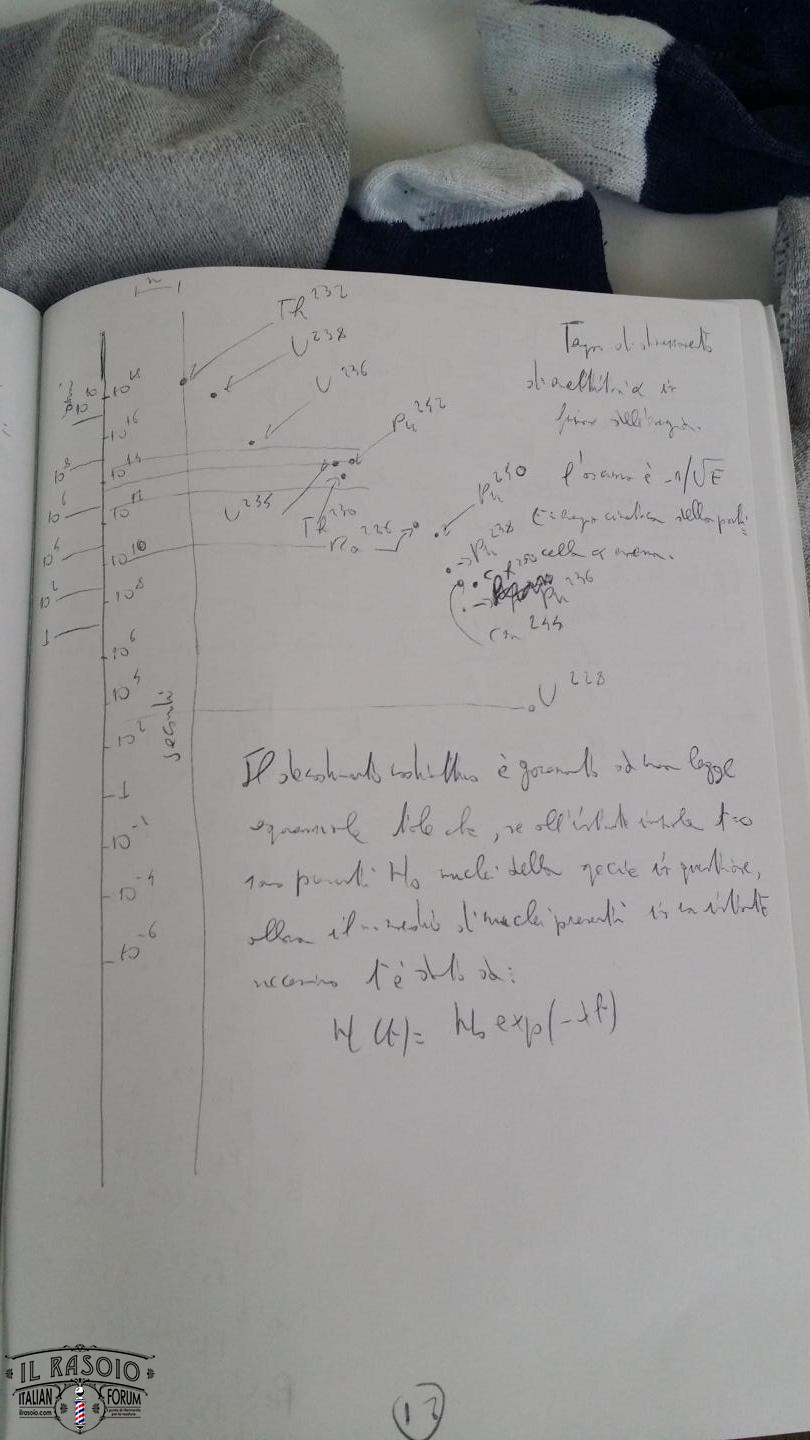 Th 232
U 238
U 236
Pu 242
U 234
Th 230
Ra 226
Pu 240
Pu 238
Cf 250
Pu 236
Cm 244
U 228
10 18
10 16
10 14
10 12
10 10
10 8
10 6
10 4
10 2
1
10 -2
10 -4
10 -6
10 10
10 8
10 6
10 4
10 2
1
secondi
Tempo di dimezzamento
di α in
funzione dell'energia.
l'ascissa è -1/√E
E: energia cinetica della parti=
cella α emessa.
Il decadimento radioattivo è governato da una legge
esponenziale tale che, se all'istante iniziale t=0
sono presenti N0 nuclei della specie in questione,
allora il n. medio di nuclei presenti in un istante
successivo t è dato da:
N(t)= N0 exp(-λt)
13
IL RASOIO
ITALIAN FORUM
ilrasoio.com